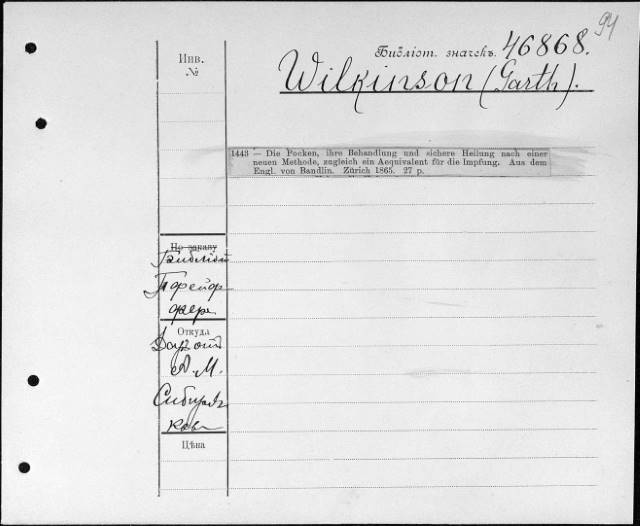 94
Инв.
№
Библіот. значекъ. 46868.
Wilkinson (Garth).
1443 — Die Pocken, ihre Behandlung und sichere Heilung nach einer
neuen Methode, zugleich ein Aequivalent für die Impfung. Aus dem
Engl. von Bandlin. Zürich 1865. 27 p.
По заказу
Пфейф
фера
Откуда
А. М.
Сибиряк
Цѣна